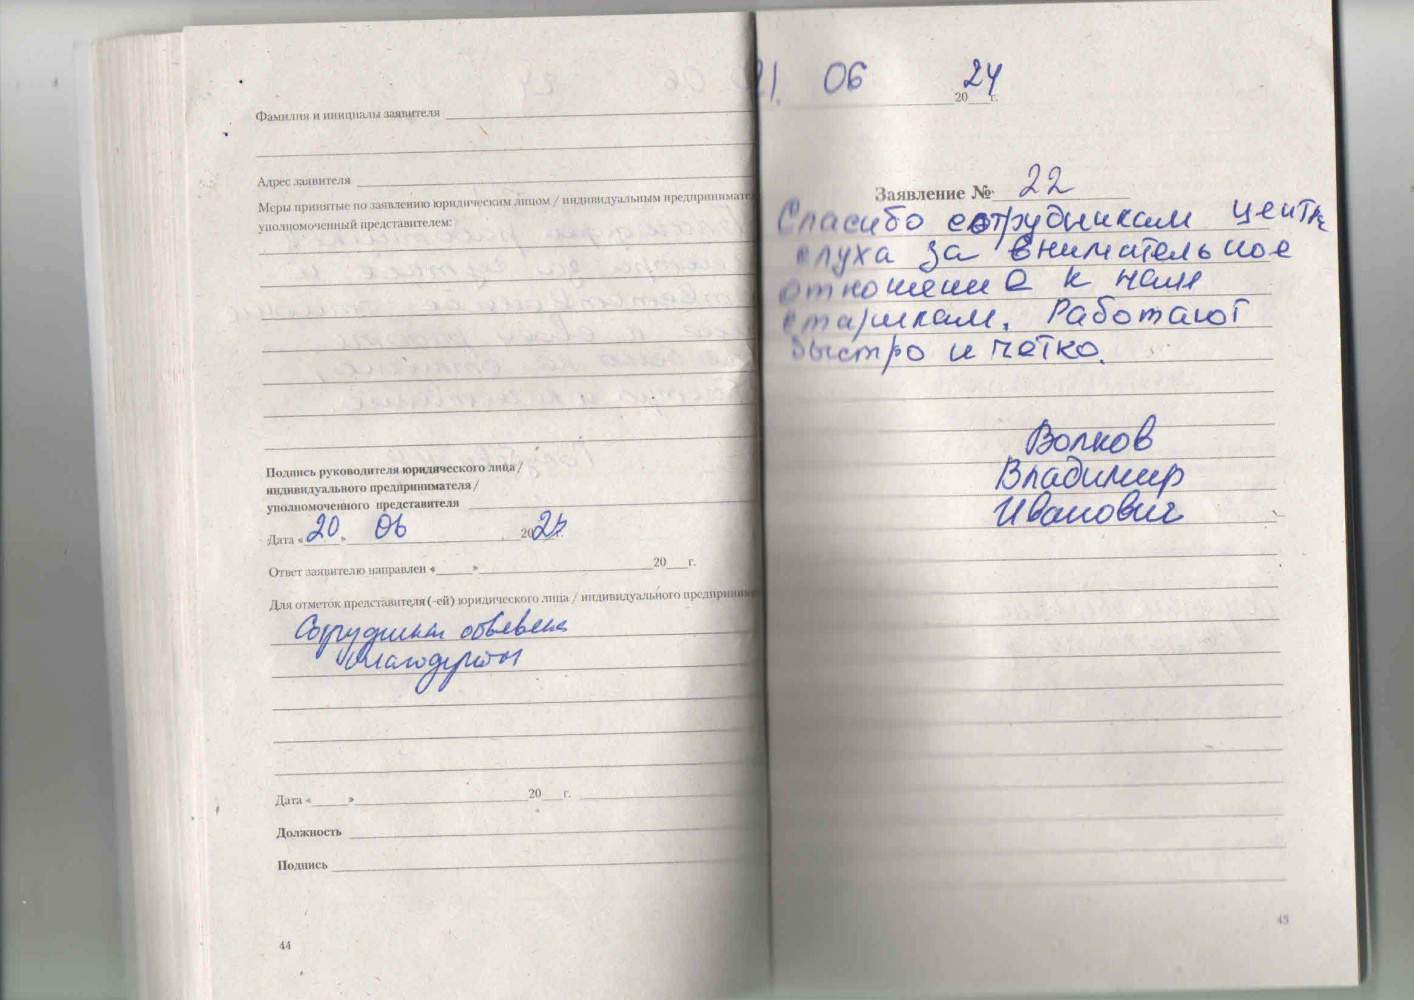 Фамилия и инициалы заявителя
Адрес заявителя
Меры принятые по заявлению юридическим лицом / индивидуальным предпринимат
уполномоченный представителем:
Подпись руководителя юридического лица /
индивидуального предпринимателя /
уполномоченного представителя
Дата «20» 06 2024г.
Ответ заявителю направлен «____»____20__г.
Для отметок представителя (-ей) юридического лица / индивидуального предприним
Сотрудникам объявлена
благодарность
Дата «____»____20__г.
Должность
Подпись
44
21. 06 2024г.
Заявление № 22
Спасибо сотрудникам центр
слуха за внимательное
отношение к нам
старикам. Работают
быстро и четко.
Волков
Владимир
Иванович
45